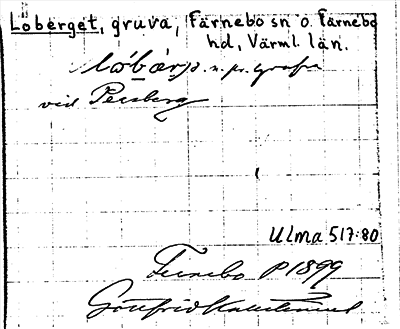 Löberget, gruva, Färnebo sn o. Färnebo
hd, Värml. län.
n. pr. grufva
vid Persberg
Ulma 517:80
Fernebo 1899
Gottfrid Kallstenius